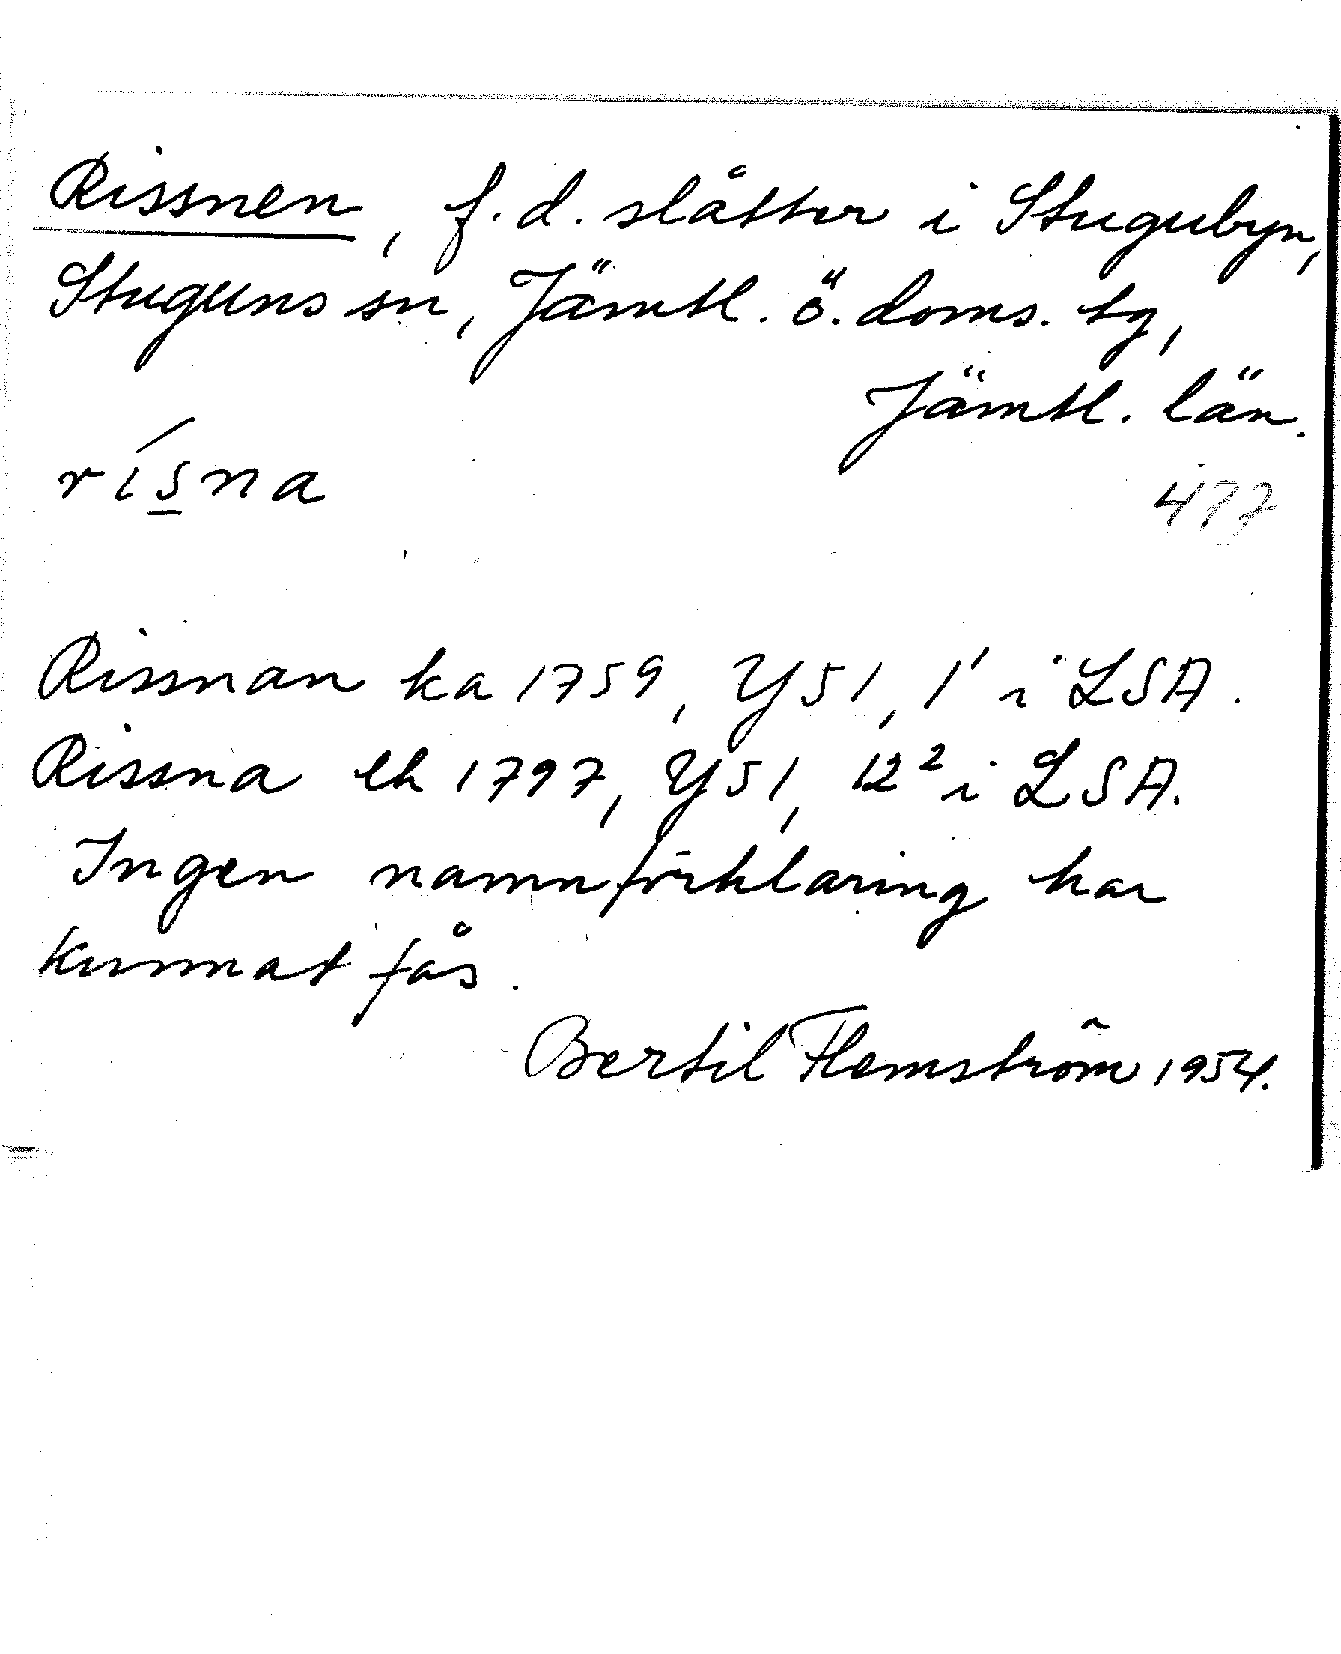 Rissnen, f.d. slåtter i Stugubyn,
Stuguns sn, Jämtl. ö. doms. tg,
Jämtl. län.
rísna
477
Rissnan ka 1759, Y51, 1' i LSA.
Rissna lh 1797, Y51, 12² i LSA.
Ingen namnförklaring har
kunnat fås.
Bertil Flemström 1954.